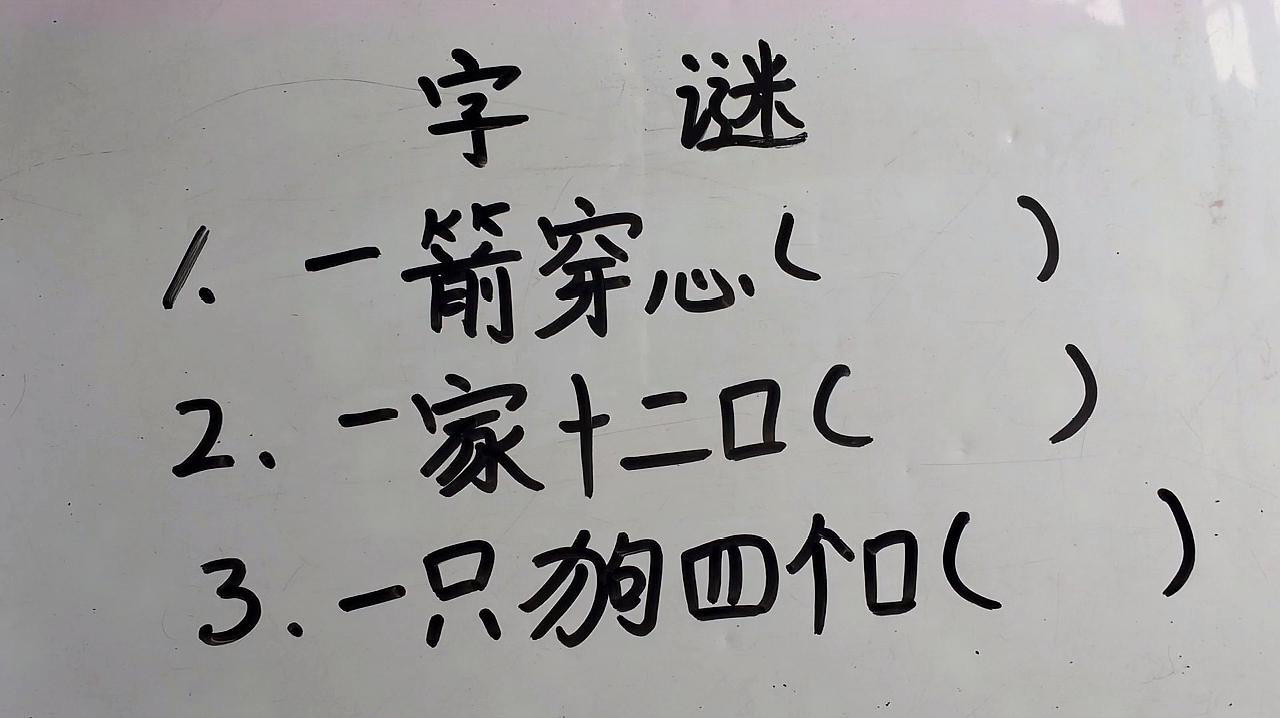 字 谜
1. 一箭穿心( )
2. 一家十二口( )
3. 一只狗四个口( )